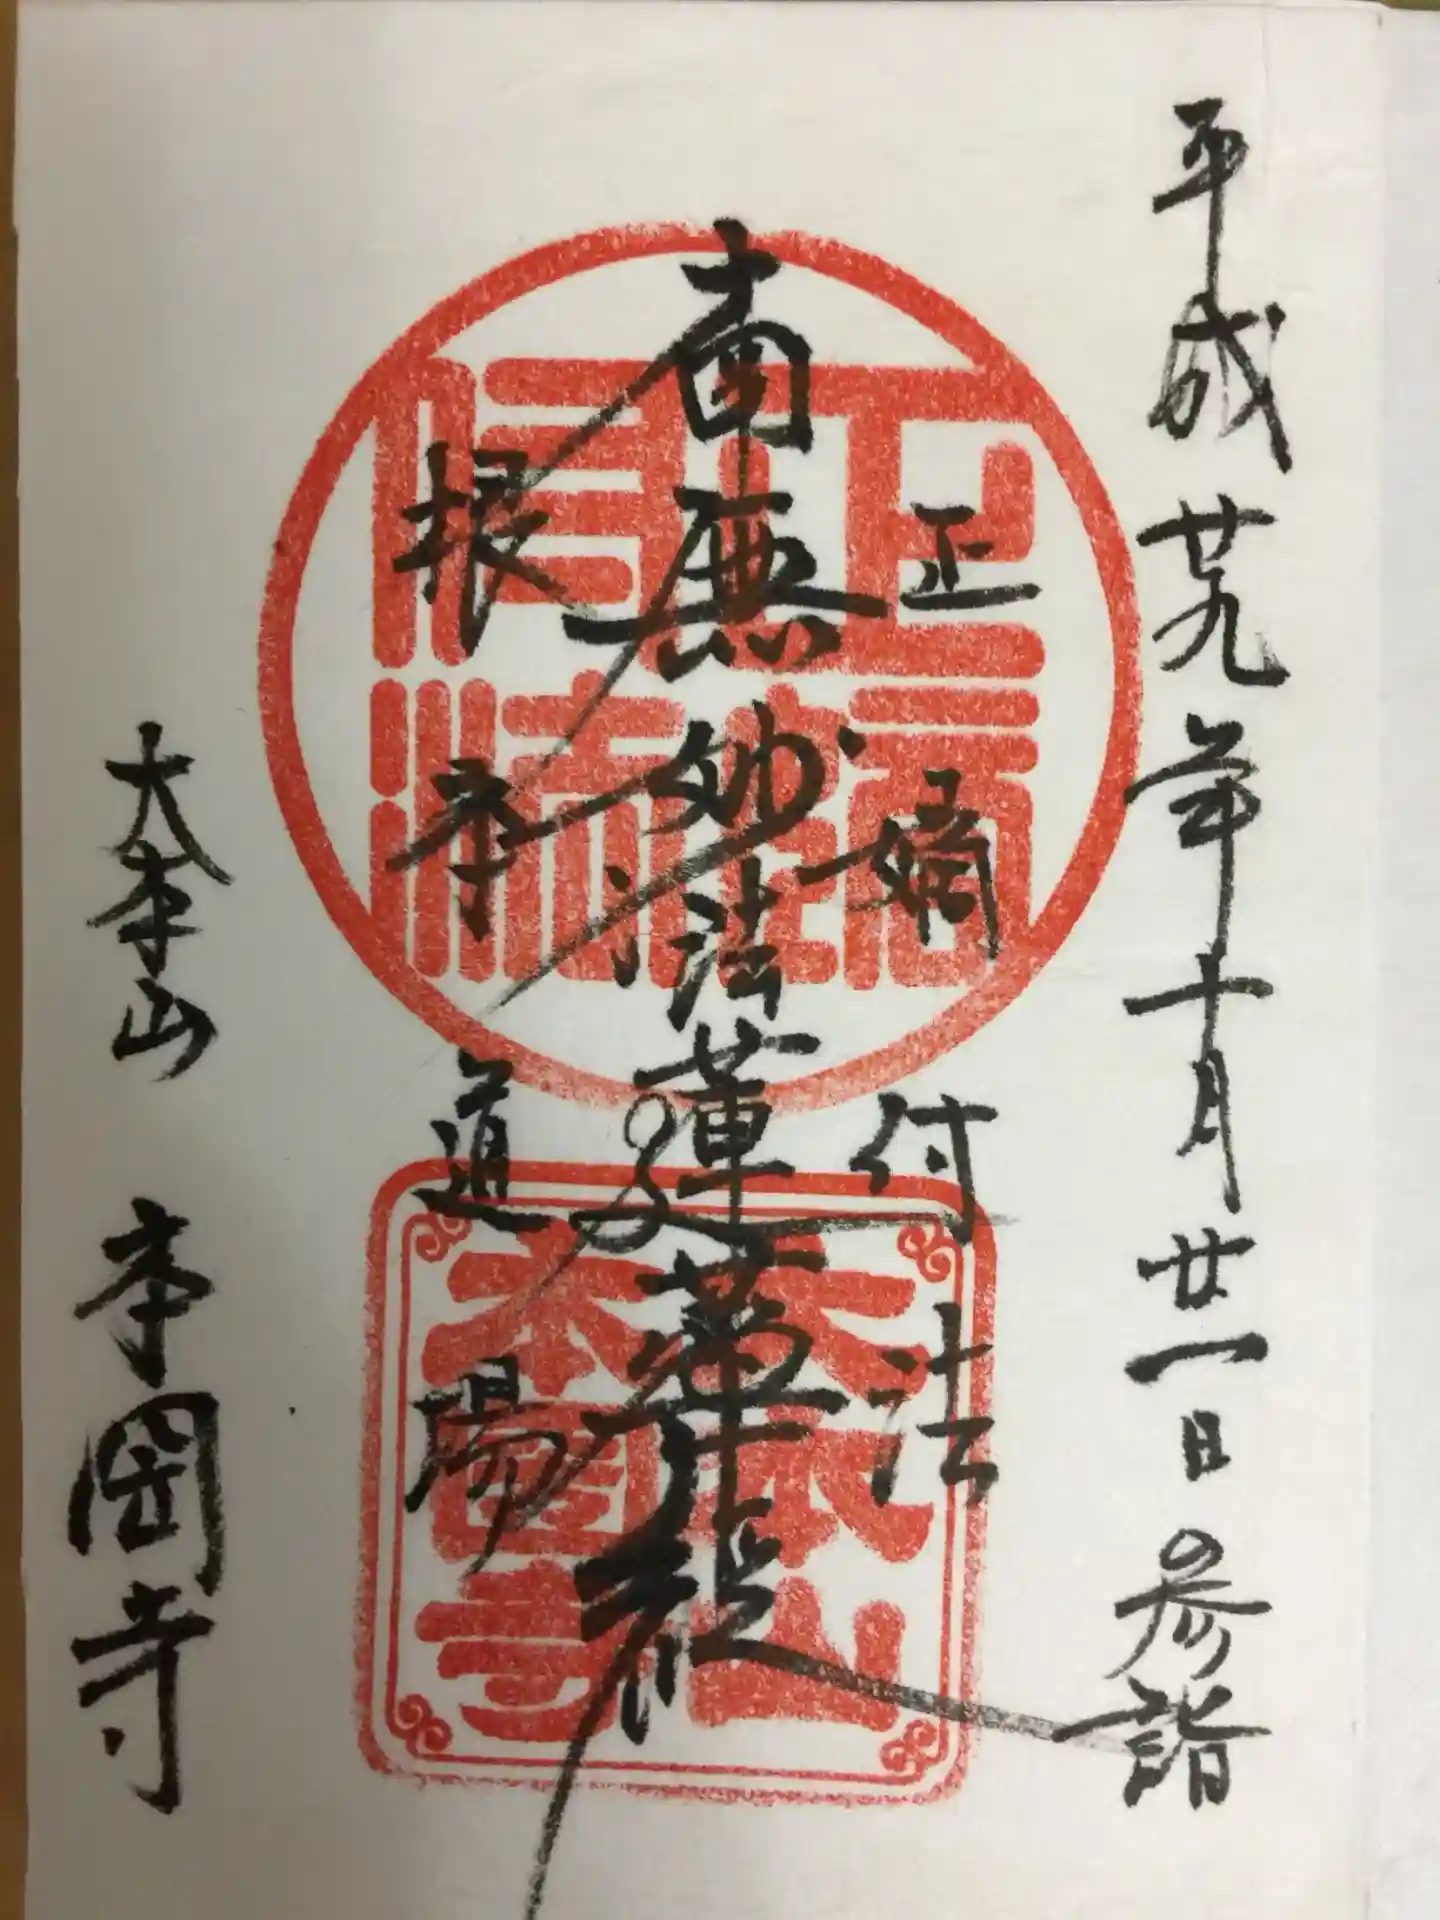 平成廿九年十月廿一日参詣
正嫡付法
南無妙法蓮華経
根本道場
大本山 本圀寺
大本山
本圀寺